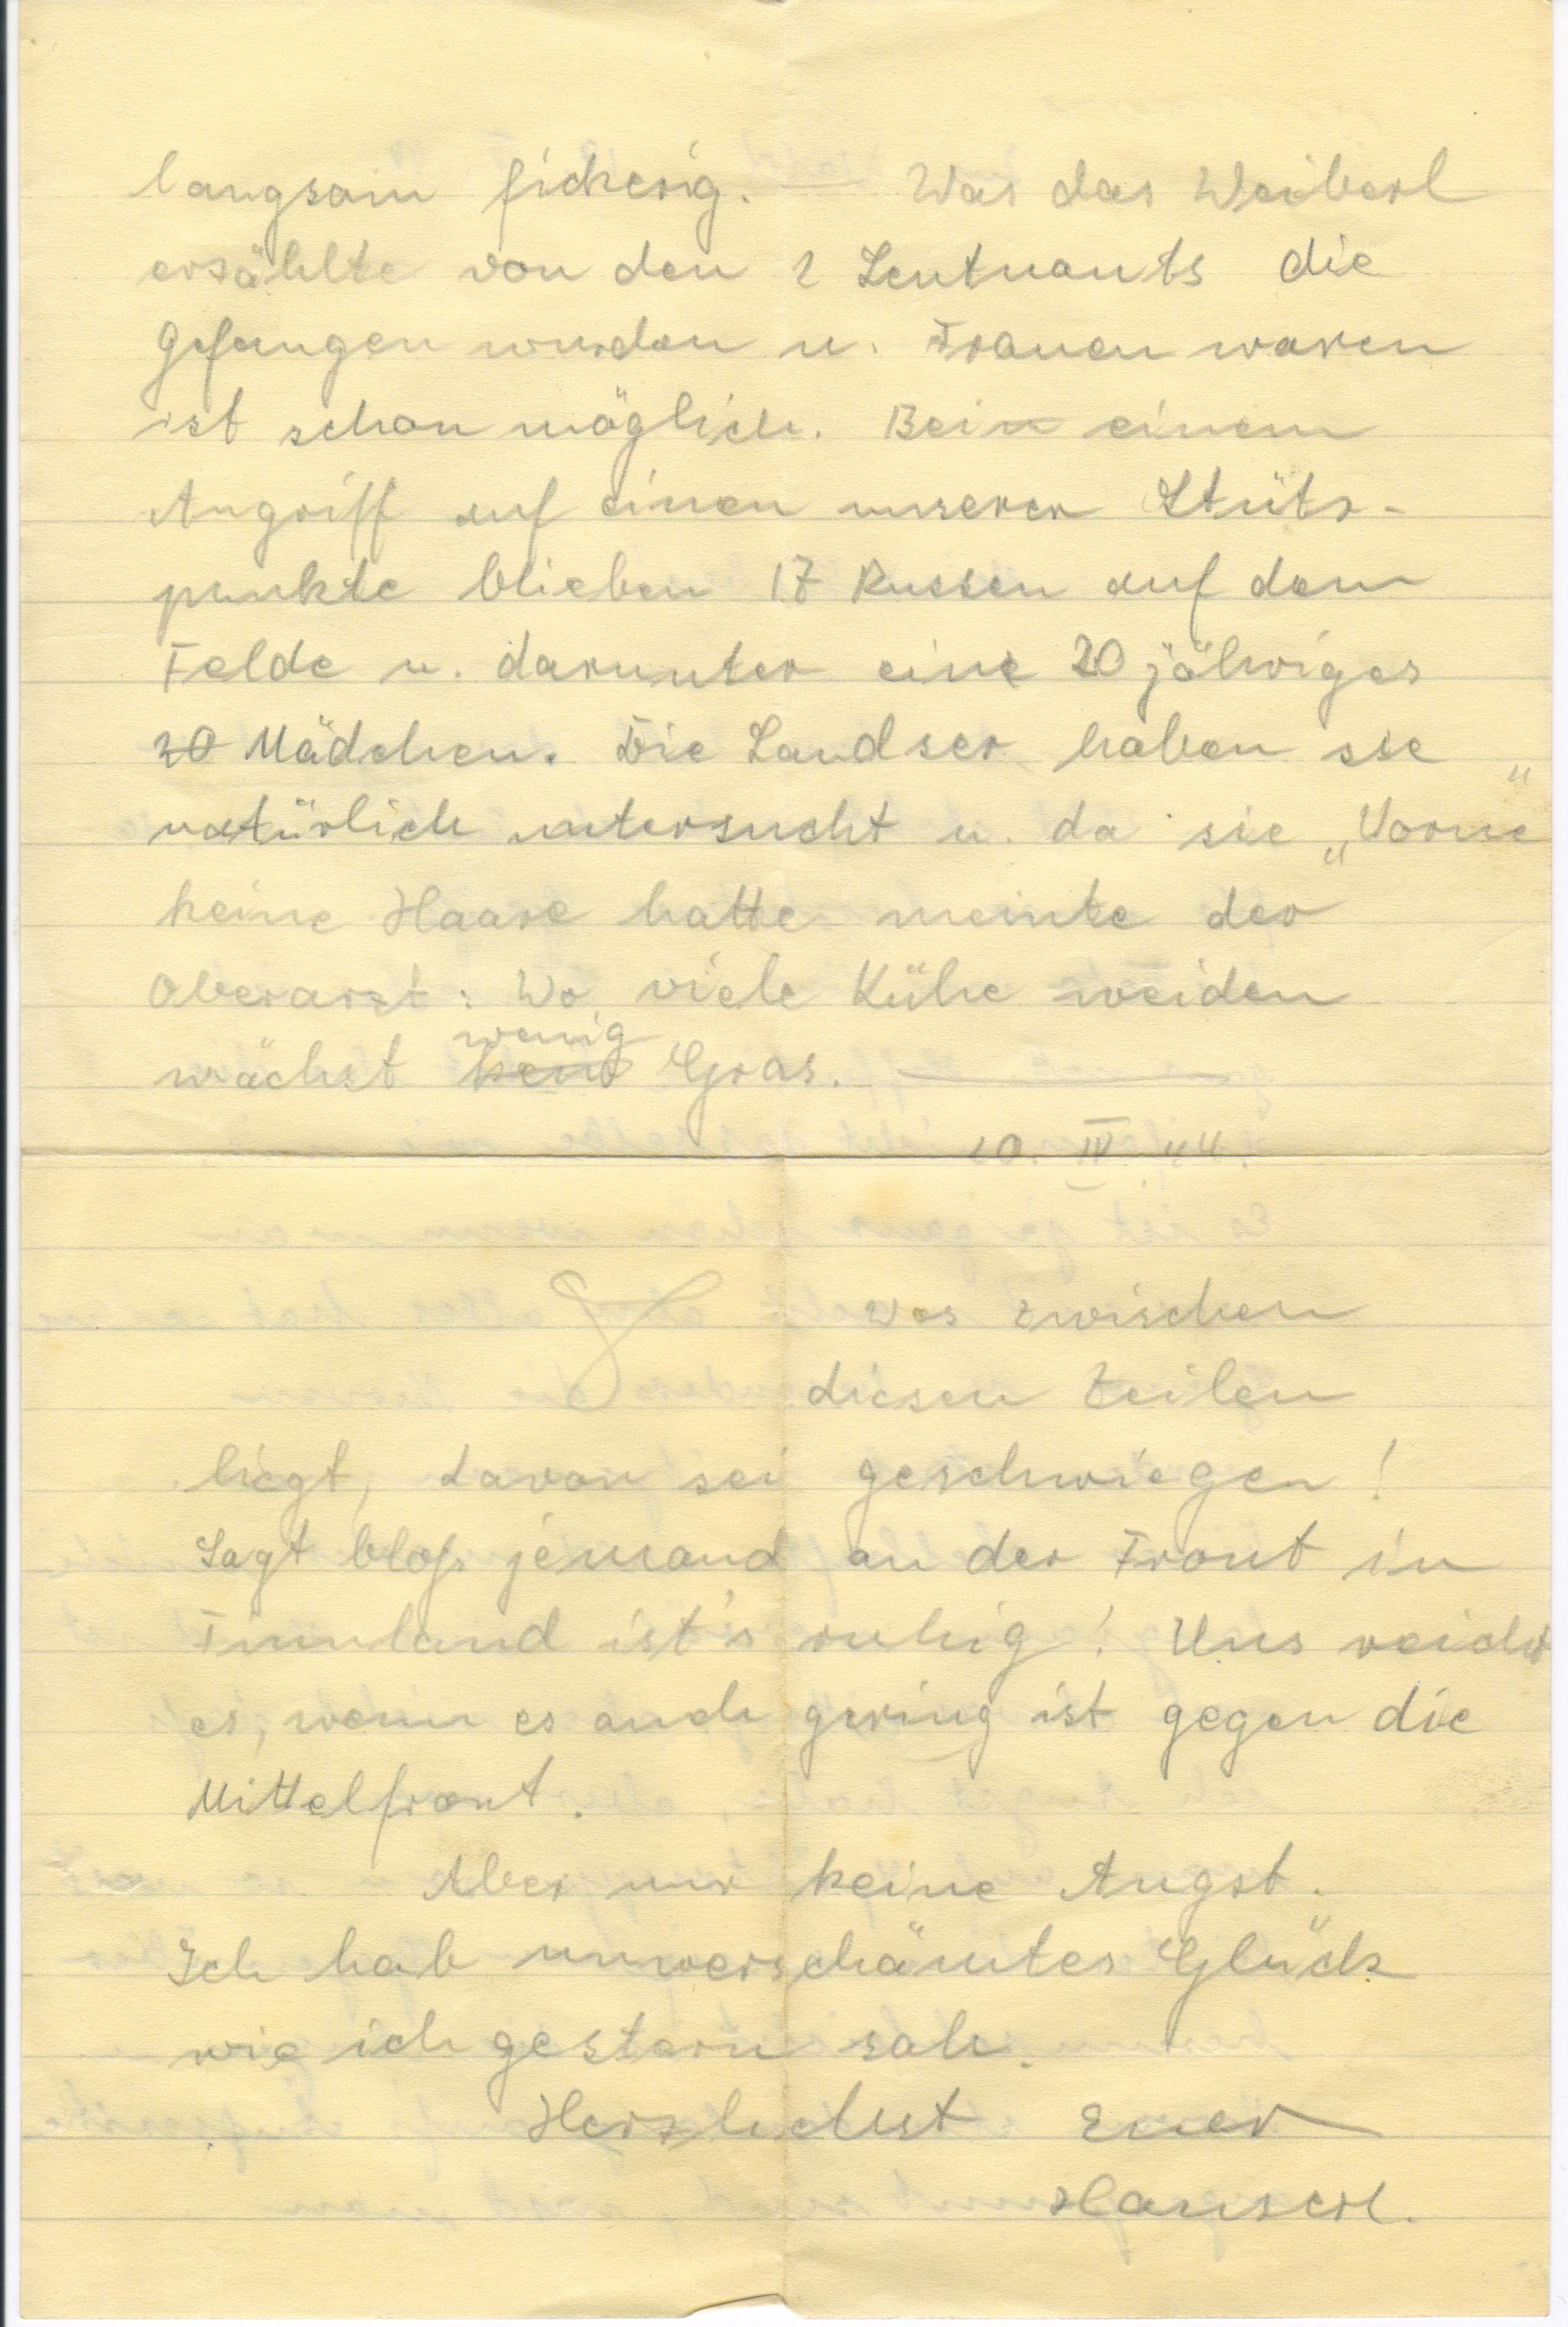 langsam fickerig. — Was das Weiberl
erzählte von den 2 Leutnants die
gefangen wurden u. Frauen waren
ist schon möglich. Bei einem
Angriff auf einen unserer Stütz-
punkte blieben 17 Russen auf dem
Felde u. darunter eine 20 jähriges
20 Mädchen. Die Landser haben sie
natürlich untersucht u. da sie „Vorne"
keine Haare hatte meinte der
Oberarzt: Wo viele Kühe weiden
wächst kein wenig Gras. —
10. IV. 44.
Was zwischen
diesen Zeilen
liegt, davon sei geschwiegen!
Sagt bloß jemand an der Front in
Finnland ist's ruhig! Uns reicht
es, wenn es auch gering ist gegen die
Mittelfront.
Aber nur keine Angst.
Ich hab unverschämtes Glück
wie ich gestern sah.
Herzlichst Euer
Hanserl.